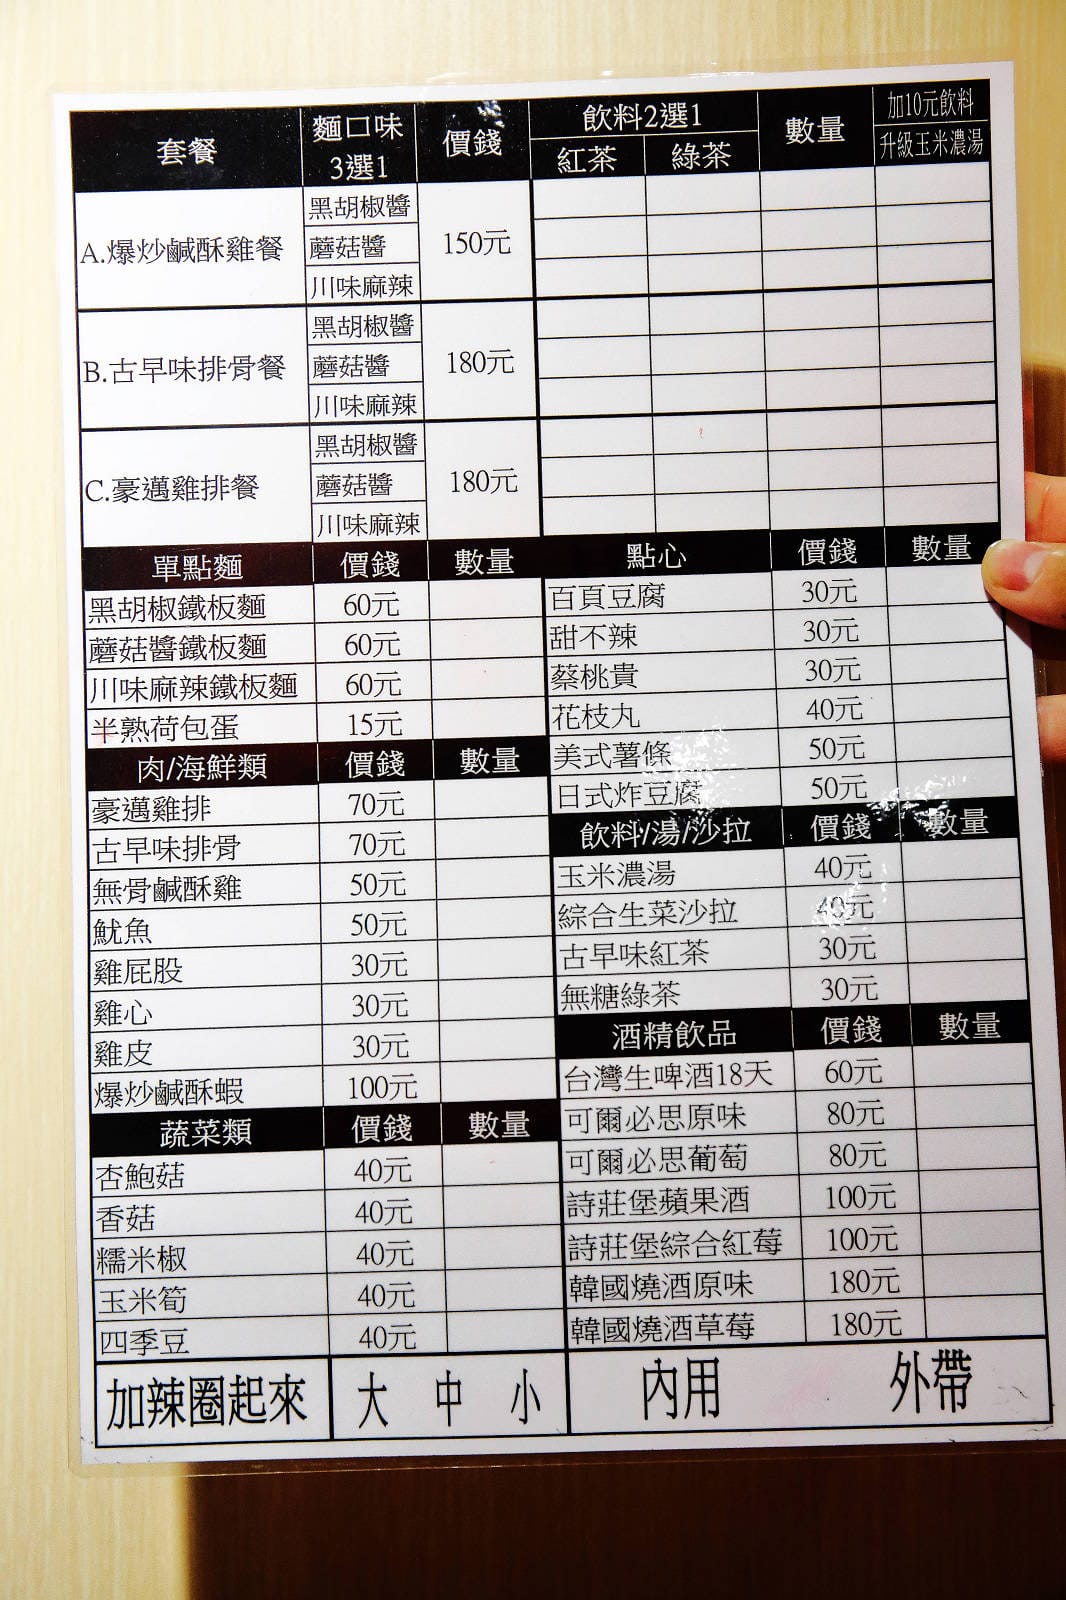 套餐 麵口味 3選1 價錢 飲料2選1 數量 加10元飲料
紅茶 綠茶 升級玉米濃湯
A.爆炒鹹酥雞餐 黑胡椒醬 150元
蘑菇醬
川味麻辣
B.古早味排骨餐 黑胡椒醬 180元
蘑菇醬
川味麻辣
C.豪邁雞排餐 黑胡椒醬 180元
蘑菇醬
川味麻辣
單點麵 價錢 數量
黑胡椒鐵板麵 60元
蘑菇醬鐵板麵 60元
川味麻辣鐵板麵 60元
半熟荷包蛋 15元
肉/海鮮類 價錢 數量
豪邁雞排 70元
古早味排骨 70元
無骨鹹酥雞 50元
魷魚 50元
雞屁股 30元
雞心 30元
雞皮 30元
爆炒鹹酥蝦 100元
蔬菜類 價錢 數量
杏鮑菇 40元
香菇 40元
糯米椒 40元
玉米筍 40元
四季豆 40元
點心 價錢 數量
百頁豆腐 30元
甜不辣 30元
蔡桃貴 30元
花枝丸 40元
美式薯條 50元
日式炸豆腐 50元
飲料/湯/沙拉 價錢 數量
玉米濃湯 40元
綜合生菜沙拉 40元
古早味紅茶 30元
無糖綠茶 30元
酒精飲品 價錢 數量
台灣生啤酒18天 60元
可爾必思原味 80元
可爾必思葡萄 80元
詩莊堡蘋果酒 100元
詩莊堡綜合紅莓 100元
韓國燒酒原味 180元
韓國燒酒草莓 180元
加辣圈起來 大 中 小 內用 外帶